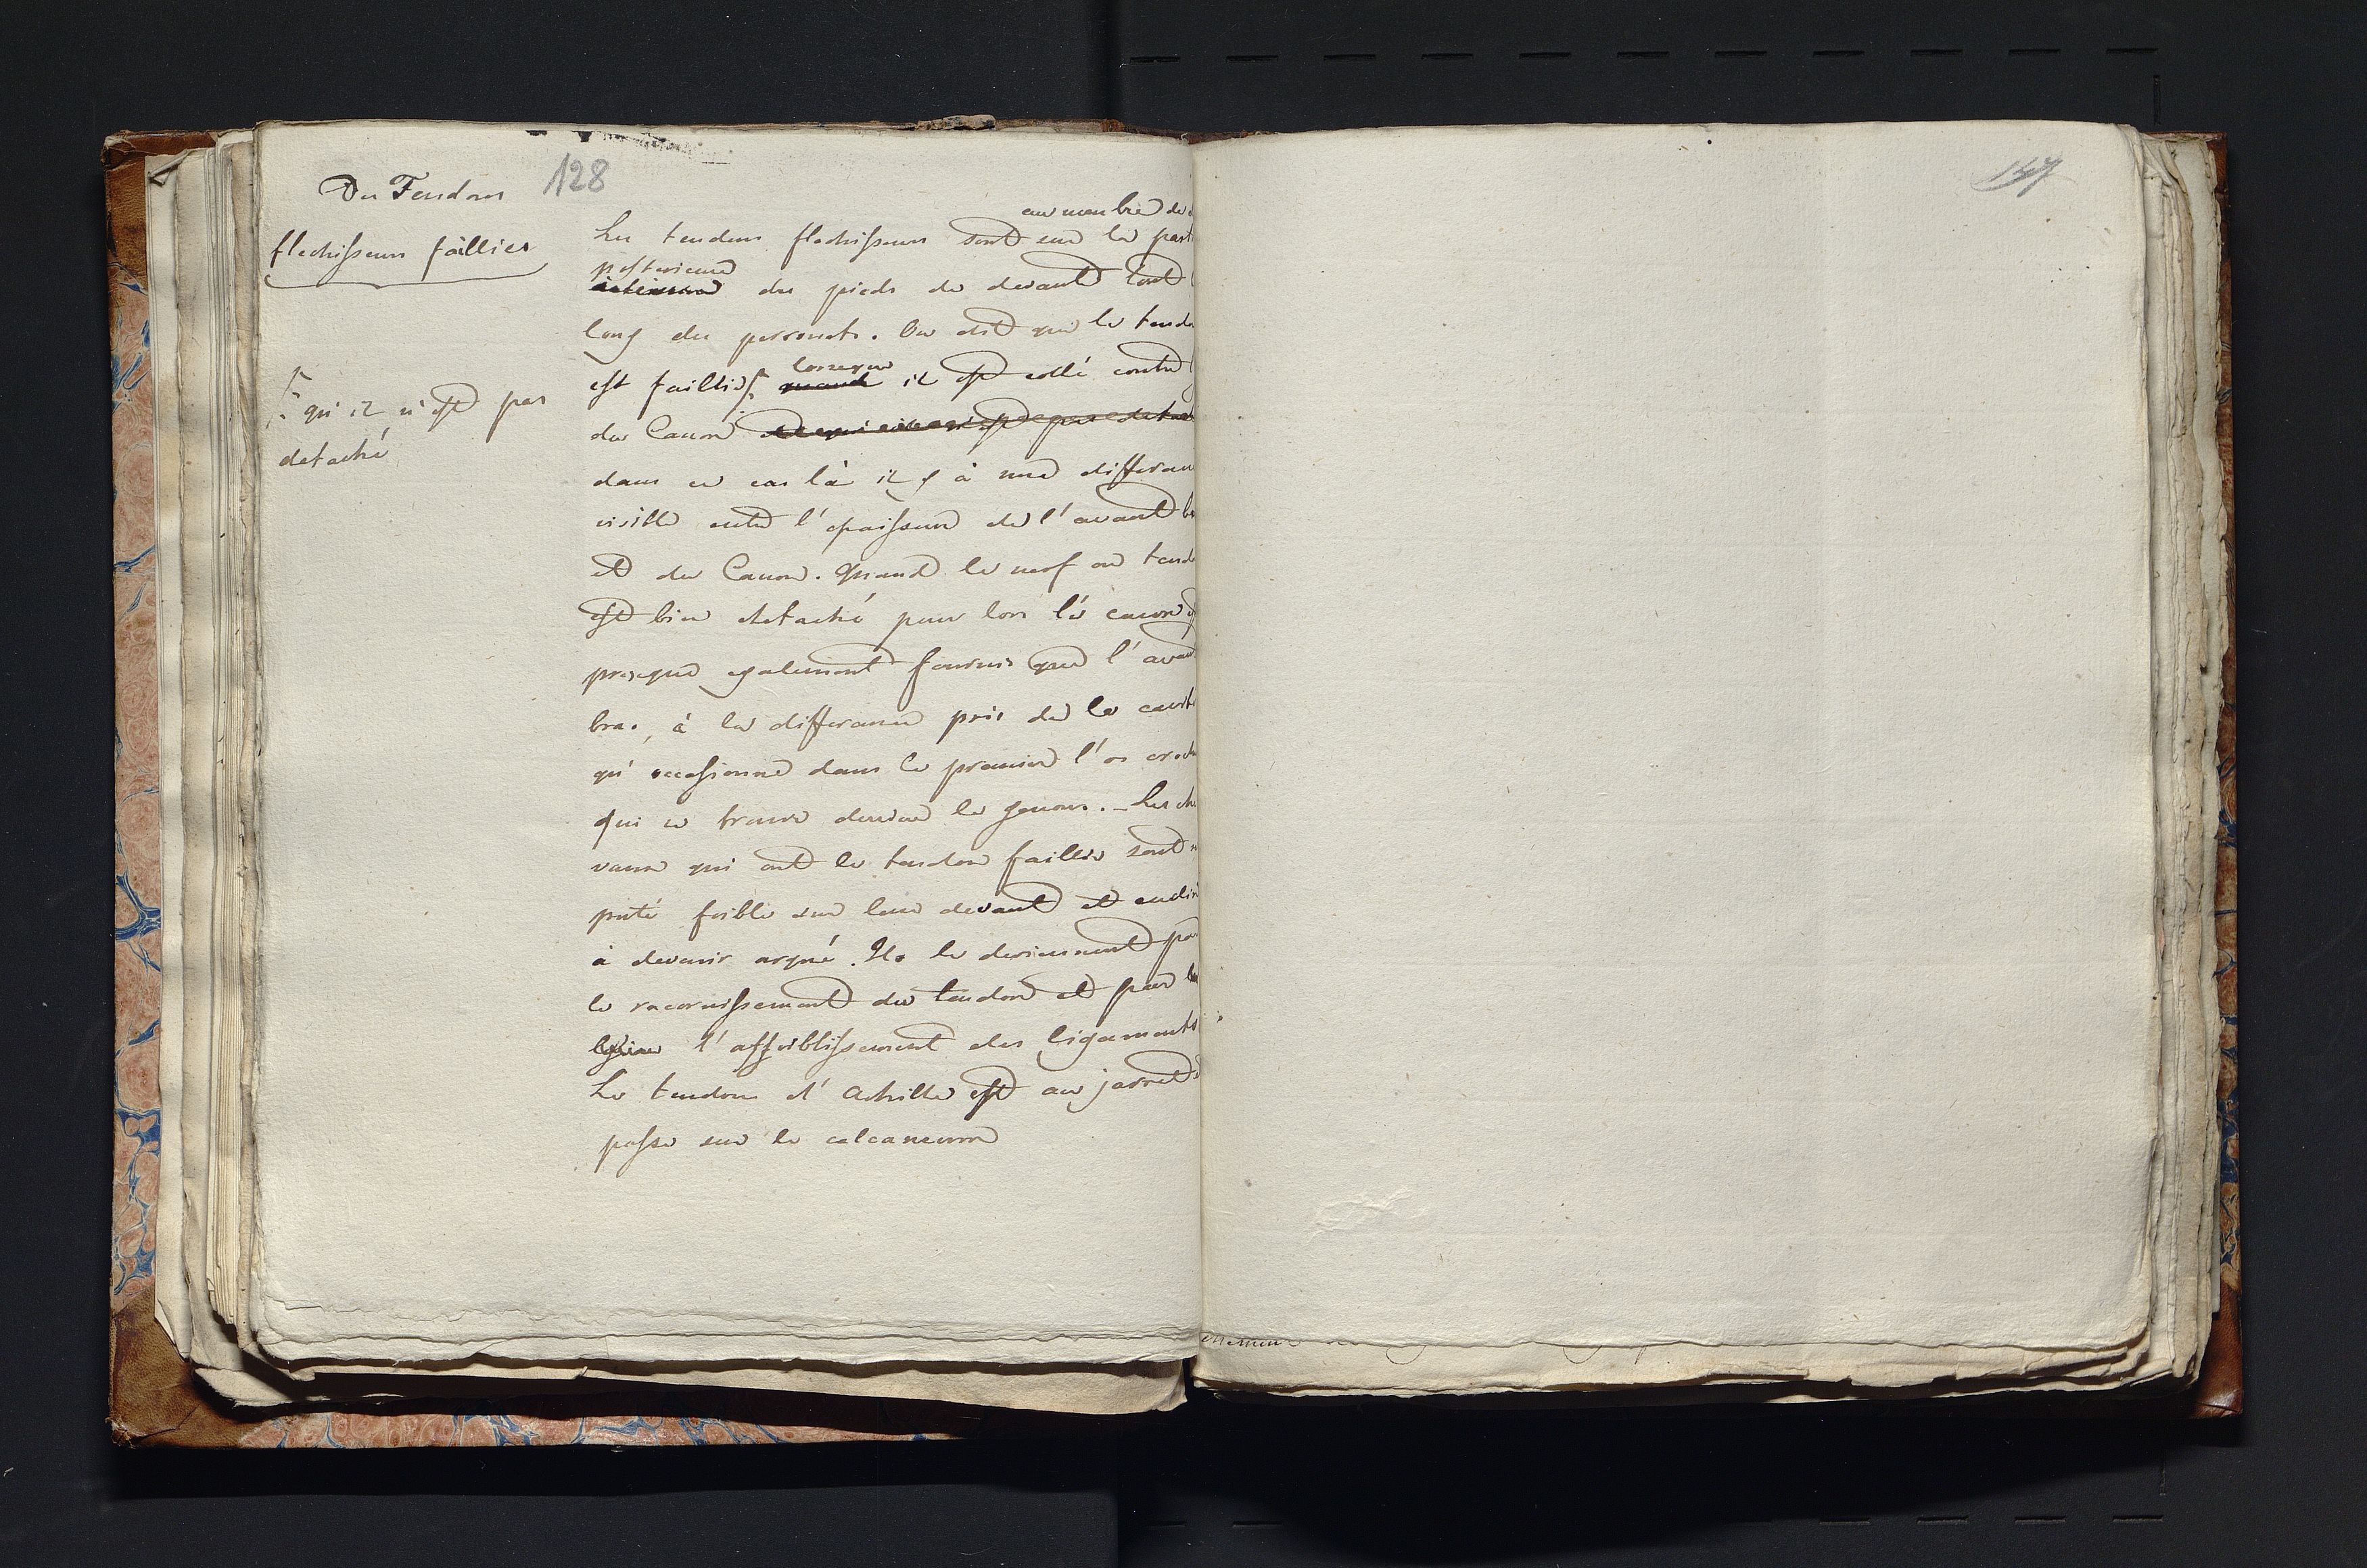 128
Des Tendons
flechisseurs faillies
qu'il n'est pas
detaché
au membre de d
Les tendons flechisseurs sont sur la parti
posterieure
des pieds de devant tout l
long des peronets. On dit que le tendo
lorsque
est faillie quand il est collé contre l
du Canon et qu'il n'est pas detach
dans ce cas là il y à une differan
visible entre l'epaisseur de l'avant br
et du Canon. Quand le nerf ou tendo
est bien detaché pour lors le canon e
presque egalement fournis que l'avan
bras, à la differance près de la cavité
qu'occasionne dans le premier l'os croch
qui se trouve derriere le genoux. - Les che
vaux qui ont le tendon faillie sont r
puté foible sur leur devant et enclin
à devenir arqué. Ils le deviennent par
le racornissement du tendon et par
l'affoiblissement des ligaments
Le tendon d'Achille est au jarret
passe sur le calcaneum
147